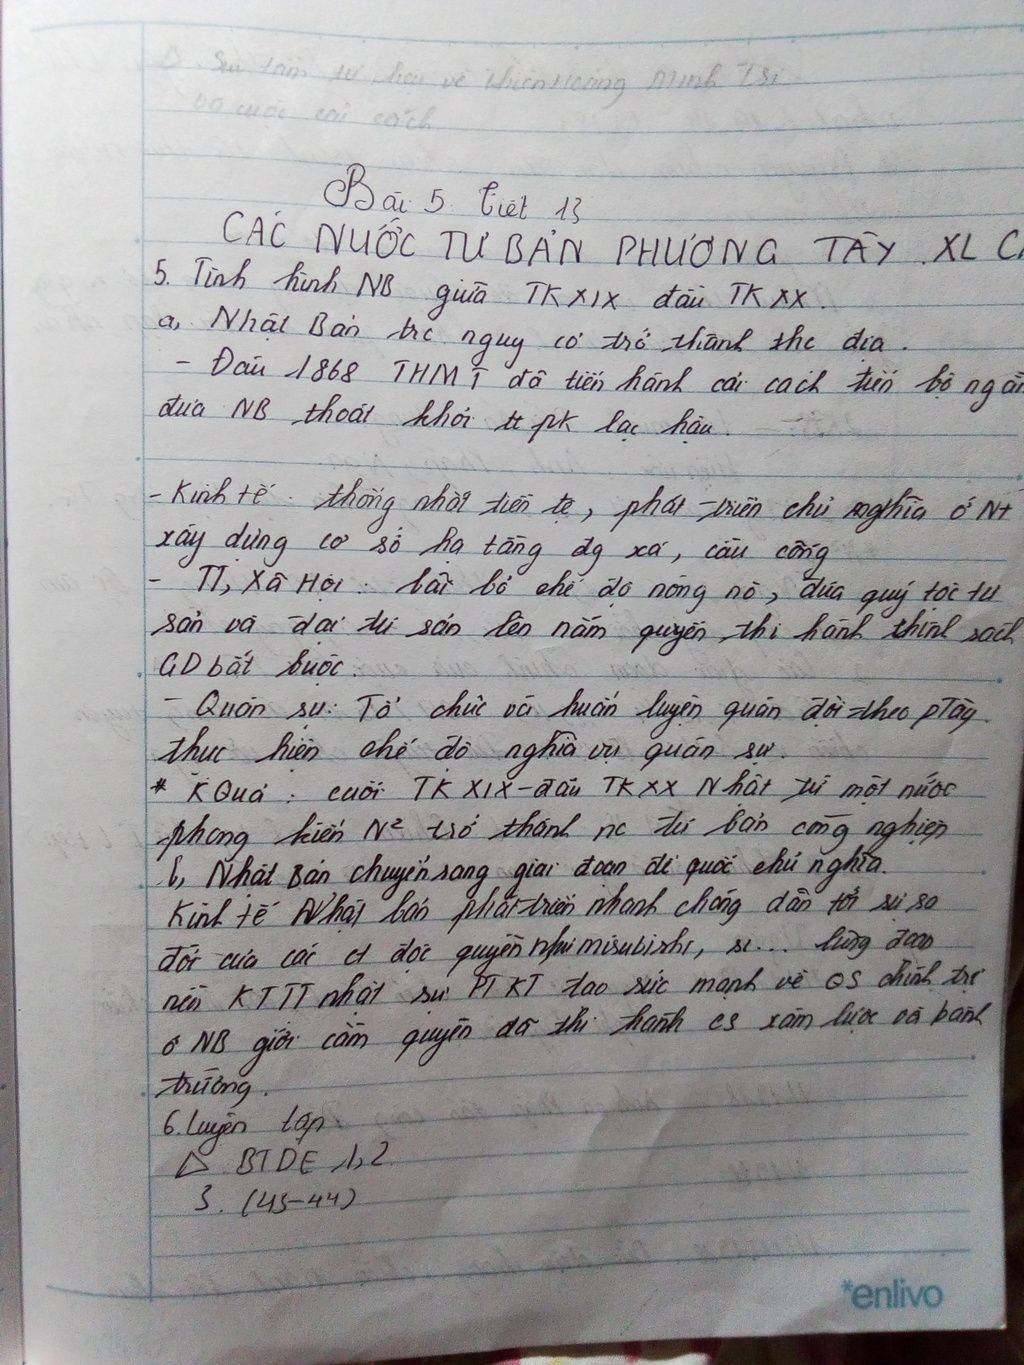 Bài 5 Tiết 13
CÁC NƯỚC TƯ BẢN PHƯƠNG TÂY XL C
5. Tình hình NB giữa TK XIX đầu TK XX.
a, Nhật Bản trc nguy cơ trở thành thc địa.
- Đầu 1868 THMT đã tiến hành cải cách tiến bộ
đưa NB thoát khỏi tt pk lạc hậu.
- Kinh tế : thống nhất tiền tệ, phát triển chủ nghĩa ở NT
xây dựng cơ sở hạ tầng đg xá, cầu cống
- TT, Xã Hội : bãi bỏ chế độ nông nô, đưa quý tộc tư
sản và đại tư sản lên nắm quyền thi hành chính sách
GD bắt buộc.
- Quân sự: Tổ chức và huấn luyện quân đội theo pTây
thực hiện chế độ nghĩa vụ quân sự.
* K Quả : cuối TK XIX-đầu TK XX Nhật từ một nước
phong kiến N² trở thành nc tư bản công nghiệp
b, Nhật Bản chuyển sang giai đoạn đế quốc chủ nghĩa.
Kinh tế Nhật bản phát triển nhanh chóng dẫn tới sự
đời của các ct độc quyền như misubishi, lũng đoạn
nền KTTT nhật sự PT KT tạo sức mạnh về QS chính trị
ở NB giới cầm quyền đã thi hành cs xâm lược và bành
trướng.
6. Luyện tập
BTDE 1, 2
3. (43-44)
*enlivo